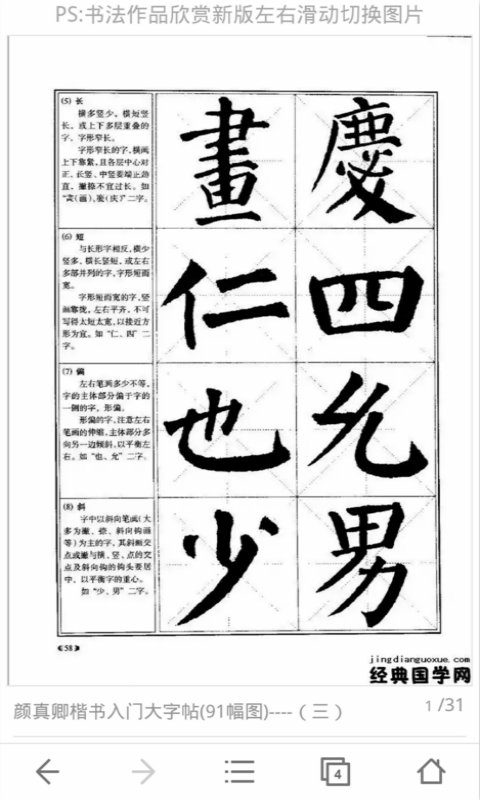 PS:书法作品欣赏新版左右滑动切换图片
(5) 长
横多竖少，横短竖
长，或上下多层重叠的
字，字形窄长。
字形窄长的字，横画
上下靠紧，且各层中心对
正、长竖、中竖要端正劲
直，撇捺不宜过长。如
“畫(画)、慶(庆)”二字。
畫
慶
(6) 短
与长形字相反，横少
竖多，横长竖短，或左右
多部并列的字，字形短而
宽。
字形短而宽的字，竖
画靠拢，左右平齐，不可
写得太短太宽，以接近方
形为宜。如“仁、四”二
字。
仁
四
(7) 偏
左右笔画多少不等，
字的主体部分偏于字的
一侧的字，形偏。
形偏的字，注意左右
笔画的伸缩，主体部分多
向另一边倾斜，以平衡左
右。如“也、允”二字。
也
允
(8) 斜
字中以斜向笔画(大
多为撇、捺、斜向钩画
等)为主的字，其斜画交
点或撇与横、竖、点的交
点及斜向钩的钩头要居
中，以平衡字的重心。
如“少、男”二字。
少
男
58
jingdianguoxue.com
经典国学网
颜真卿楷书入门大字帖(91幅图)----（三）
1/31
4